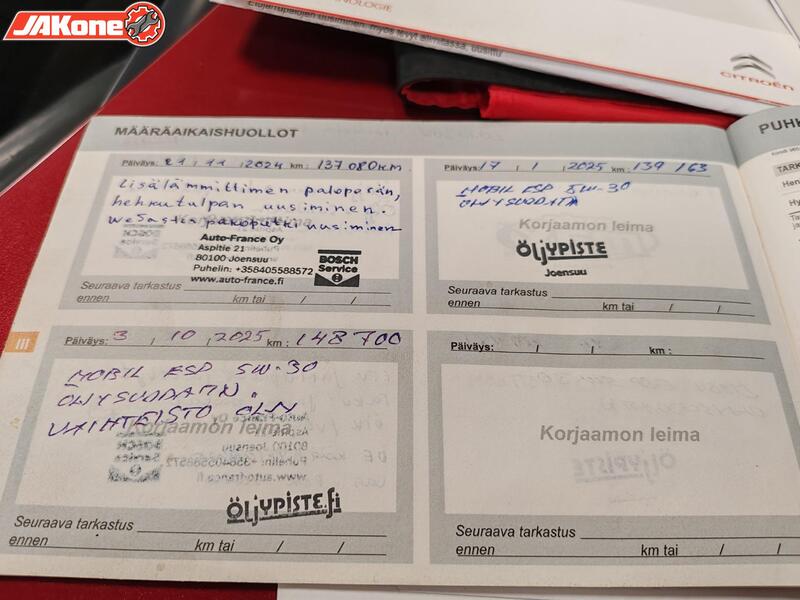 JAKone
NOLOGIE
Etujarrupalojen uusiminen, myös levyt alimitassa, uusittu
CITROËN
MÄÄRÄAIKAISHUOLLOT
Päiväys: 21 / 11 / 2024 km: 137 080km
Lisälämmittimen paloperän,
hehkutulpan uusiminen.
Webasto pakoputki uusiminen
Auto-France Oy
Aspitie 21
80100 Joensuu
Puhelin: +358405588572
www.auto-france.fi
BOSCH
Service
Seuraava tarkastus
ennen km tai / /
Päiväys: 17 / 1 / 2025 km: 139 163
MOBIL ESP 5W-30
ÖLJYSUODATIN
Korjaamon leima
ÖLJYPISTE
Joensuu
Seuraava tarkastus
ennen km tai / /
III
Päiväys: 3 / 10 / 2025 km: 148 700
MOBIL ESP 5W-30
ÖLJYSUODATIN.
VAIHTEISTO ÖLJY
Korjaamon leima
ÖLJYPISTE.fi
Seuraava tarkastus
ennen km tai / /
Päiväys: / / km:
Korjaamon leima
Seuraava tarkastus
ennen km tai / /
PUHK
TARK
Hen
Hy